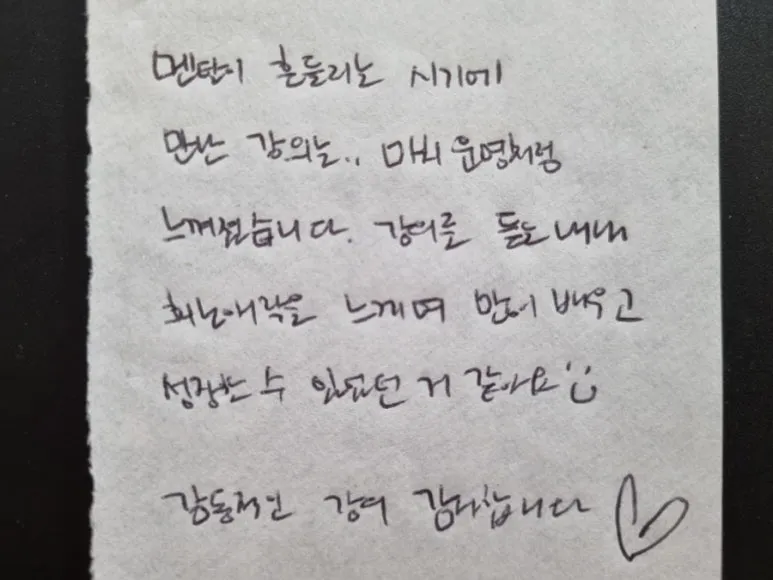 멘탈이 흔들리는 시기에
만난 강의는.. 마치 운명처럼
느껴졌습니다. 강의를 듣는 내내
희노애락을 느끼며 많이 배우고
성장할 수 있었던 거 같아요
감동적인 강의 감사합니다